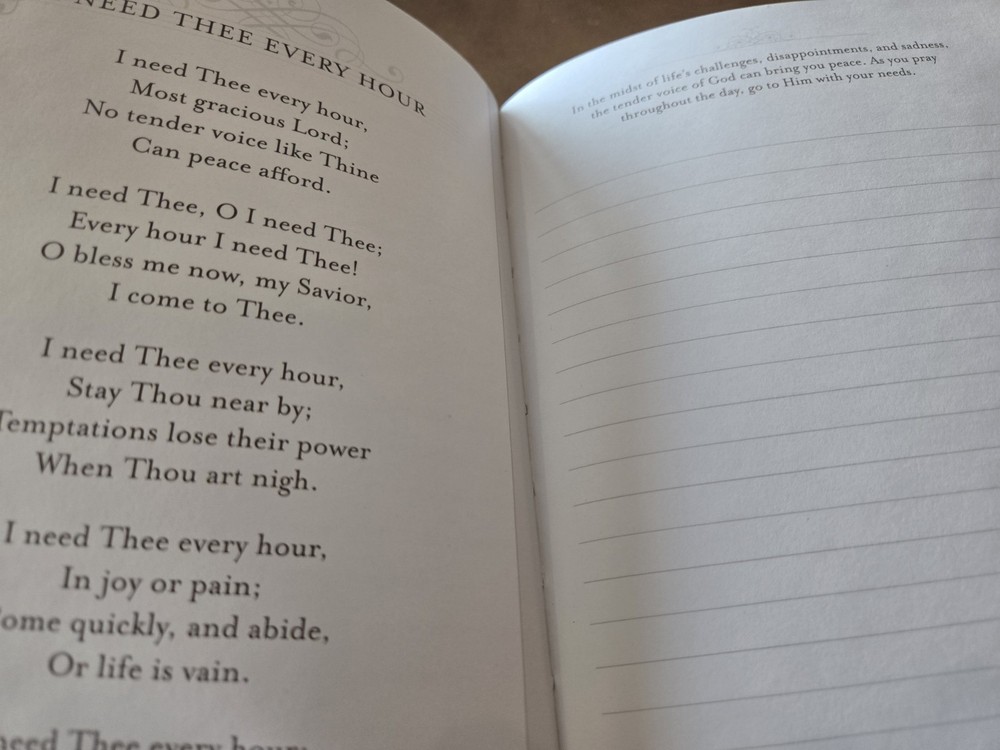 NEED THEE EVERY HOUR
I need Thee every hour,
Most gracious Lord;
No tender voice like Thine
Can peace afford.
I need Thee, O I need Thee;
Every hour I need Thee!
O bless me now, my Savior,
I come to Thee.
I need Thee every hour,
Stay Thou near by;
Temptations lose their power
When Thou art nigh.
I need Thee every hour,
In joy or pain;
ome quickly, and abide,
Or life is vain.
need Thee every hour
In the midst of life's challenges, disappointments, and sadness,
the tender voice of God can bring you peace. As you pray
throughout the day, go to Him with your needs.